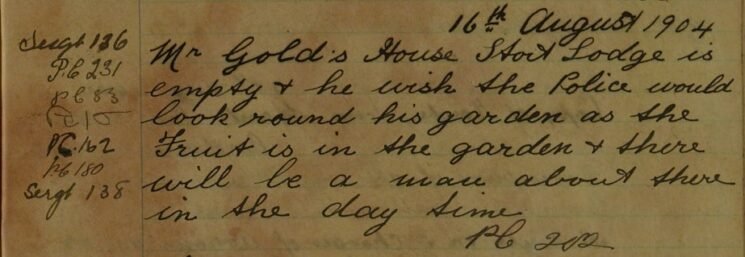 16th August 1904
Sergt 136
PC 231
PC 83
PC 162
PC 180
Sergt 138
Mr Gold's House Stort Lodge is
empty & he wish the Police would
look round his garden as the
Fruit is in the garden & there
will be a man about there
in the day time
PC 282